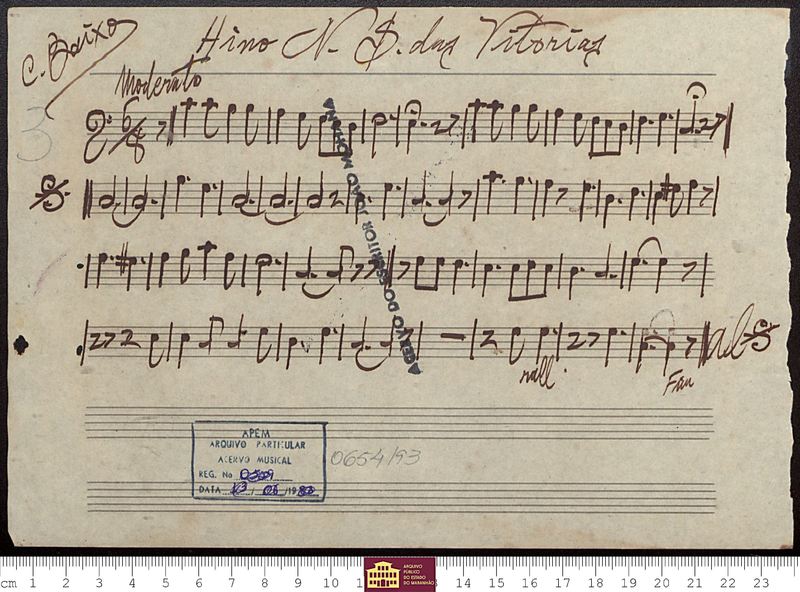 C. Baixo
Hino N. S. das Vitorias
Moderato
6/8
3
ACERVO DO ESCRITOR JOÃO MOHANA
rall.
Fim
al
APEM
ARQUIVO PARTICULAR
ACERVO MUSICAL
REG. No
DATA 13 / 01 / 19
0654/93
cm 1 2 3 4 5 6 7 8 9 10 14 15 16 17 18 19 20 21 22 23
ARQUIVO
PÚBLICO
DO ESTADO
DO MARANHÃO